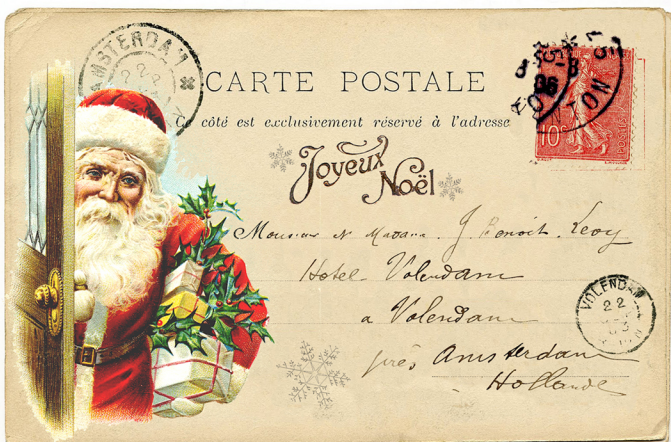 AMSTERDAM
22
CARTE POSTALE
Ce côté est exclusivement réservé à l'adresse
10c
Joyeux
Noël
Monsieur et Madame J. Benoit-Levy
Hotel Volendam
a Volendam
près Amsterdam
Hollande
VOLENDAM
22